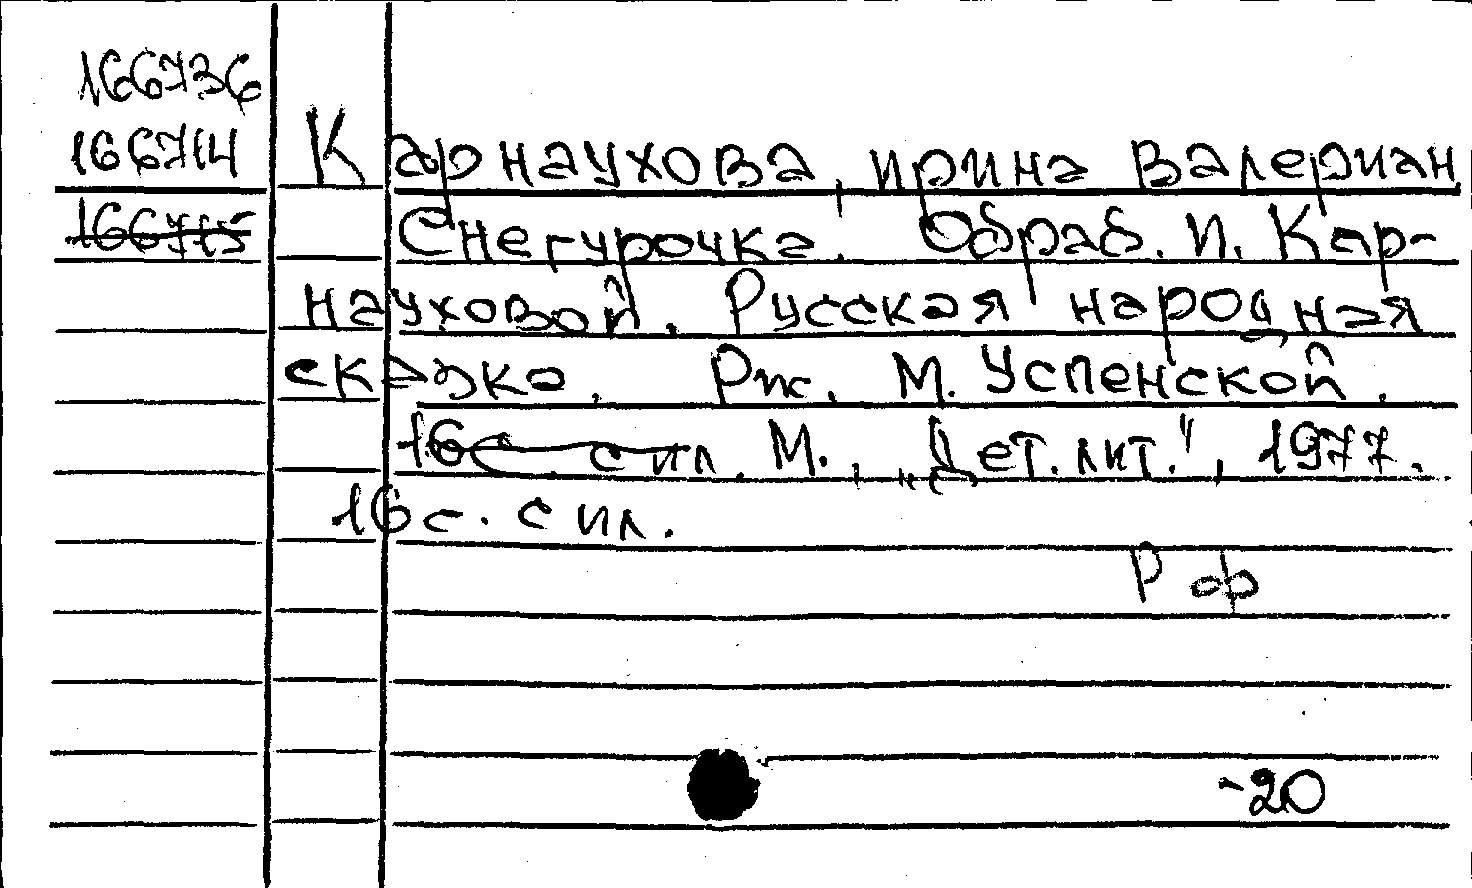 166736
166714 Карнаухова, Ирина Валериан
166715 Снегурочка. Обраб. И. Кар-
науховой. Русская народная
сказка. Рис. М. Успенской.
16 с ил. М., „Дет. лит.", 1977.
16 с. с ил.
Р ф
-20